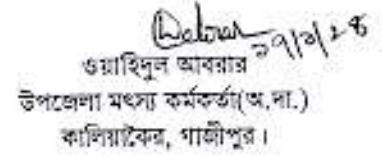 ২৭/৩/২৪
ওয়াহিদুল আবরার
উপজেলা মৎস্য কর্মকর্তা(অ.দা.)
কালিয়াকৈর, গাজীপুর।